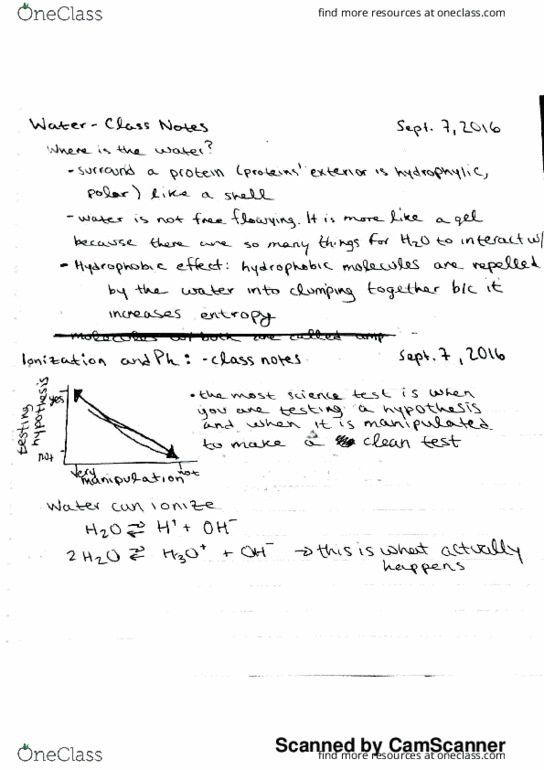 OneClass
find more resources at oneclass.com
Water - Class Notes Sept. 7, 2016
Where is the water?
- surround a protein (proteins' exterior is hydrophylic,
polar) like a shell
- water is not free flowing. It is more like a gel
because there are so many things for H₂O to interact w/
- Hydrophobic effect: hydrophobic molecules are repelled
by the water into clumping together b/c it
increases entropy
molecules w/ both are called amp
Ionization and Ph: - class notes Sept. 7, 2016
testing hypothesis
yes
not
very
not
manipulation
• the most science test is when
you are testing a hypothesis
and when it is manipulated
to make a clean test
Water can ionize
H₂O ⇌ H⁺ + OH⁻
2H₂O ⇌ H₃O⁺ + OH⁻ → this is what actually
happens
Scanned by CamScanner
OneClass
find more resources at oneclass.com